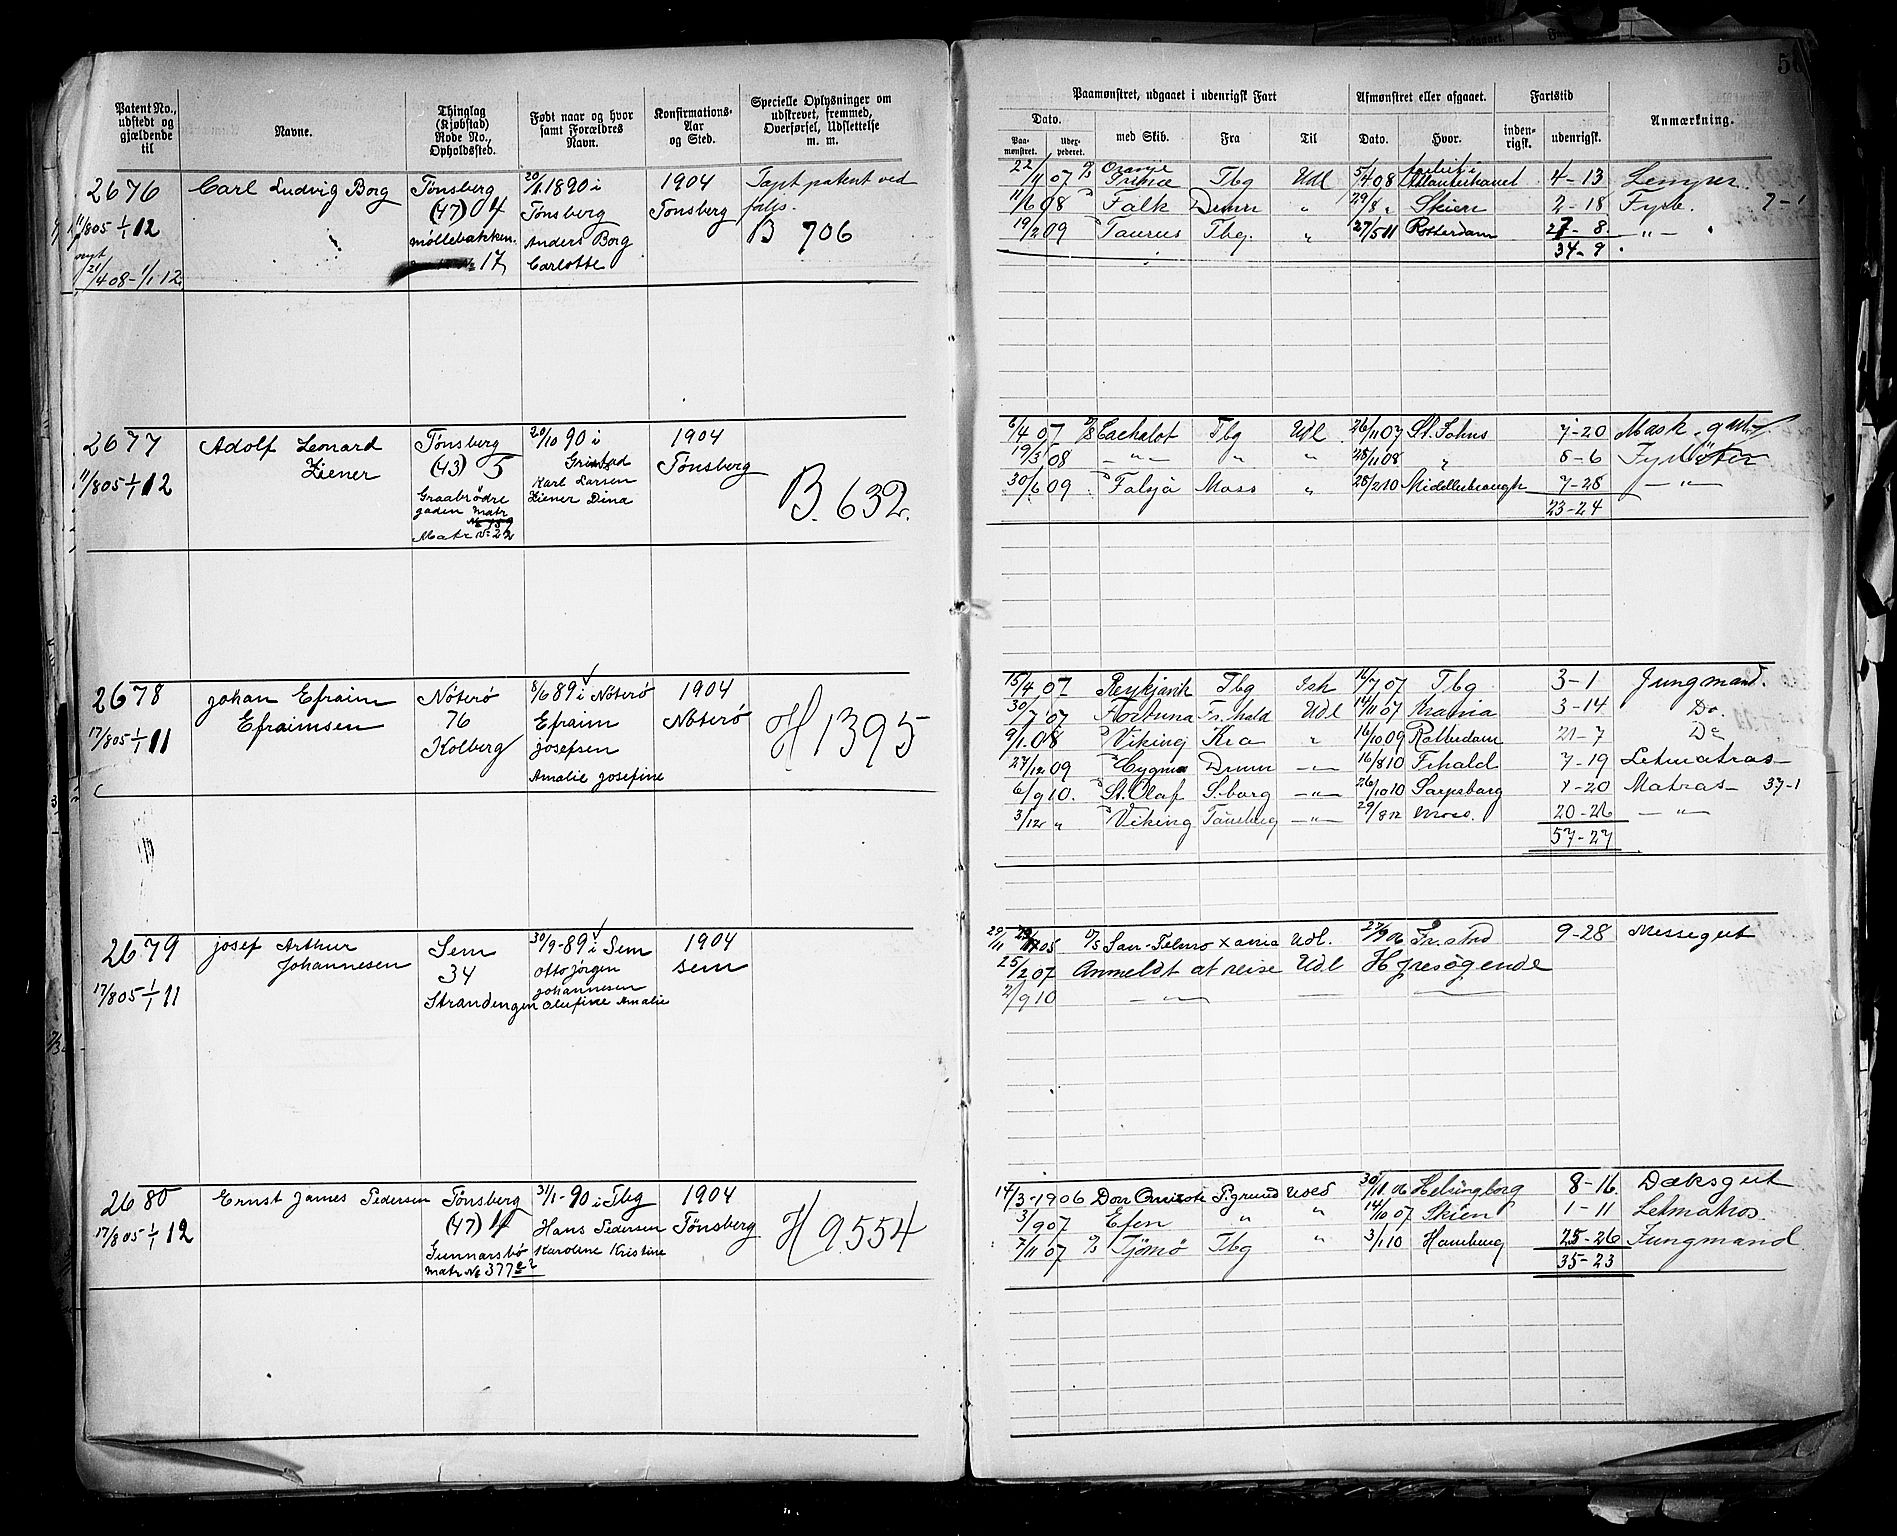 Patent No., udstedt og gjældende til
Navne.
Thinglag (Kjøbstad) Rode No., Opholdssted.
Født naar og hvor samt Forældres Navn.
Konfirmations-Aar og Sted.
Specielle Oplysninger om udskrevet, fremmed, Overførsel, Udslettelse m. m.
2676 Carl Ludvig Borg Tønsberg 20/1 1890 i 1904 Tapt patent ved
(47) 04 Tønsberg Tonsberg forlis.
11/8 05 1/1 12 Møllebakken Anders Borg B 706
17 Carlotte
nyt
21/4 08-1/1 12.
2677 Adolf Leonard Tønsberg 20/10 90 i 1904
Ziener (43) 5 Tønsberg
11/8 05 1/1 12 Graabrødre Karl Larsen B. 632.
gaden Matr Ziener Dina
No 159
Matr No 22
2678 Johan Efraim Nøterø 8/6 89 i Nøterø 1904 H 1395
Efraimsen 76 Efraim Nøterø
17/8 05 1/1 11 Kolberg Josefsen
Amalie Josefine
2679 Josef Arthur Sem 30/9-89 i Sem 1904
Johannesen 34 Otto Jørgen Sem
17/8 05 1/1 11 Johannesen
Strandengen Olefine Amalie
2680 Ernst James Pedersen Tønsberg 31/1-90 i Tbg 1904 H 9554
(47) 4 Hans Pedersen Tønsberg
17/8 05 1/1 12 Gunnarsbø Karoline Kristine
Matr No 377
50
Paamønstret, udgaaet i udenrigsk Fart
Afmønstret eller afgaaet.
Fartstid
Anmærkning.
Dato.
Paa-mønstret.
Uderpederet.
med Skib.
Fra
Til
Dato.
Hvor.
inden-rigsk.
udenrigsk.
22/11 07 Tbg Udl 5/4 08 Atlanterhavet 4-13 Lemper
11/6 08 Falk Drmn " 29/8 " Skien 2-18 Fyrb. 7-1
19/2 09 Taurus Tbg. " 27/5 11 Rotterdam 27-8 -"-
34-9
6/4 07 Cachalot Tbg Udl 26/11 07 St. Johns 7-20 Mask. gut
19/3 08 -"- " " 25/11 08 " 8-6 Fyrbøter
30/6 09 Falsjå Moss " 28/2 10 Middlesbrough 7-28 -"-
23-24
15/4 07 Reykjavik Tbg Ish 16/7 07 Tbg 3-1 Jungmand.
30/7 07 Fortuna Fr.hald Udl 14/11 07 Krania 3-14 Do.
9/1 08 Viking Kra " 16/10 09 Rotterdam 21-7 Do
27/12 09 Cygnus Drmn -"- 16/8 10 Frhald 7-19 Letmatros
6/9 10. St. Olaf S.borg -"- 26/10 10 Sarpsborg 1-20 Matros 37-1
3/12 " Viking Tønsberg -"- 29/8 12 Moss. 20-26 -"-
57-27
29/11 05 San-Telmo Xania Udl. 27/9 06 Fr.stad 9-28 Messegut
25/2 07 Anmeldt at reise Udl Hyresøgende
2/9 10 -"-
17/3-1906 Don P.grund Udl 30/11 06 Helsingborg 8-16. Dæksgut
3/9 07 Efen " " 14/10 07 Skien 1-11 Letmatros
7/11 07 Tjømø Tbg " 3/1 10 Hamburg 25-26 Jungmand
35-23